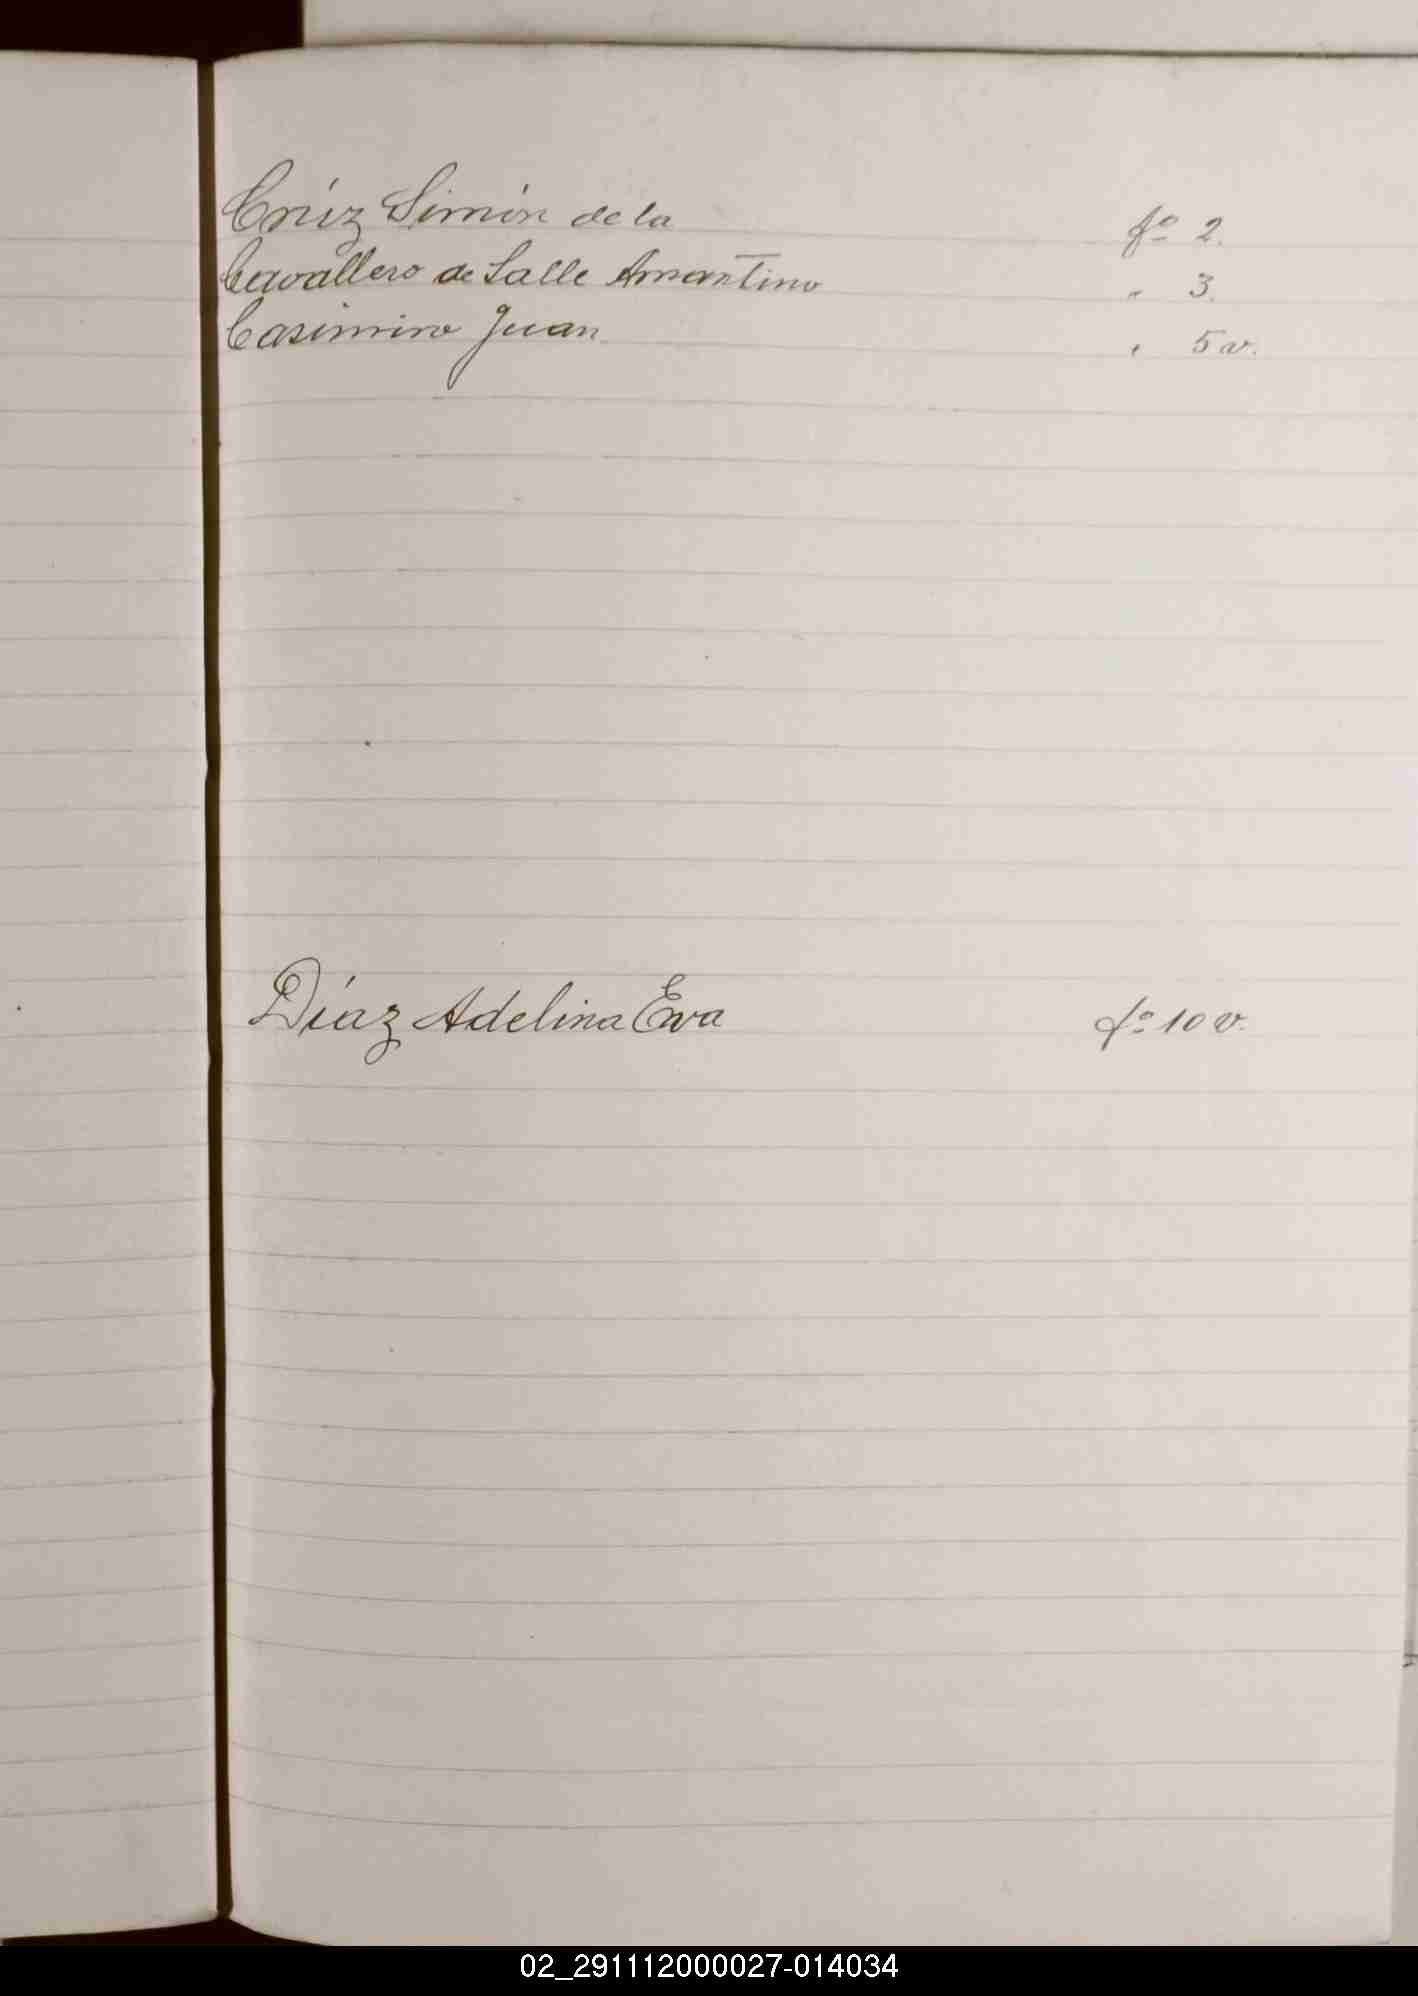 Crúz Simón de la fº 2.
Cavallero de Salle Amantino " 3.
Casimiro Juan " 5 v.
Díaz Adelina Eva fº 10 v.
02_291112000027-014034